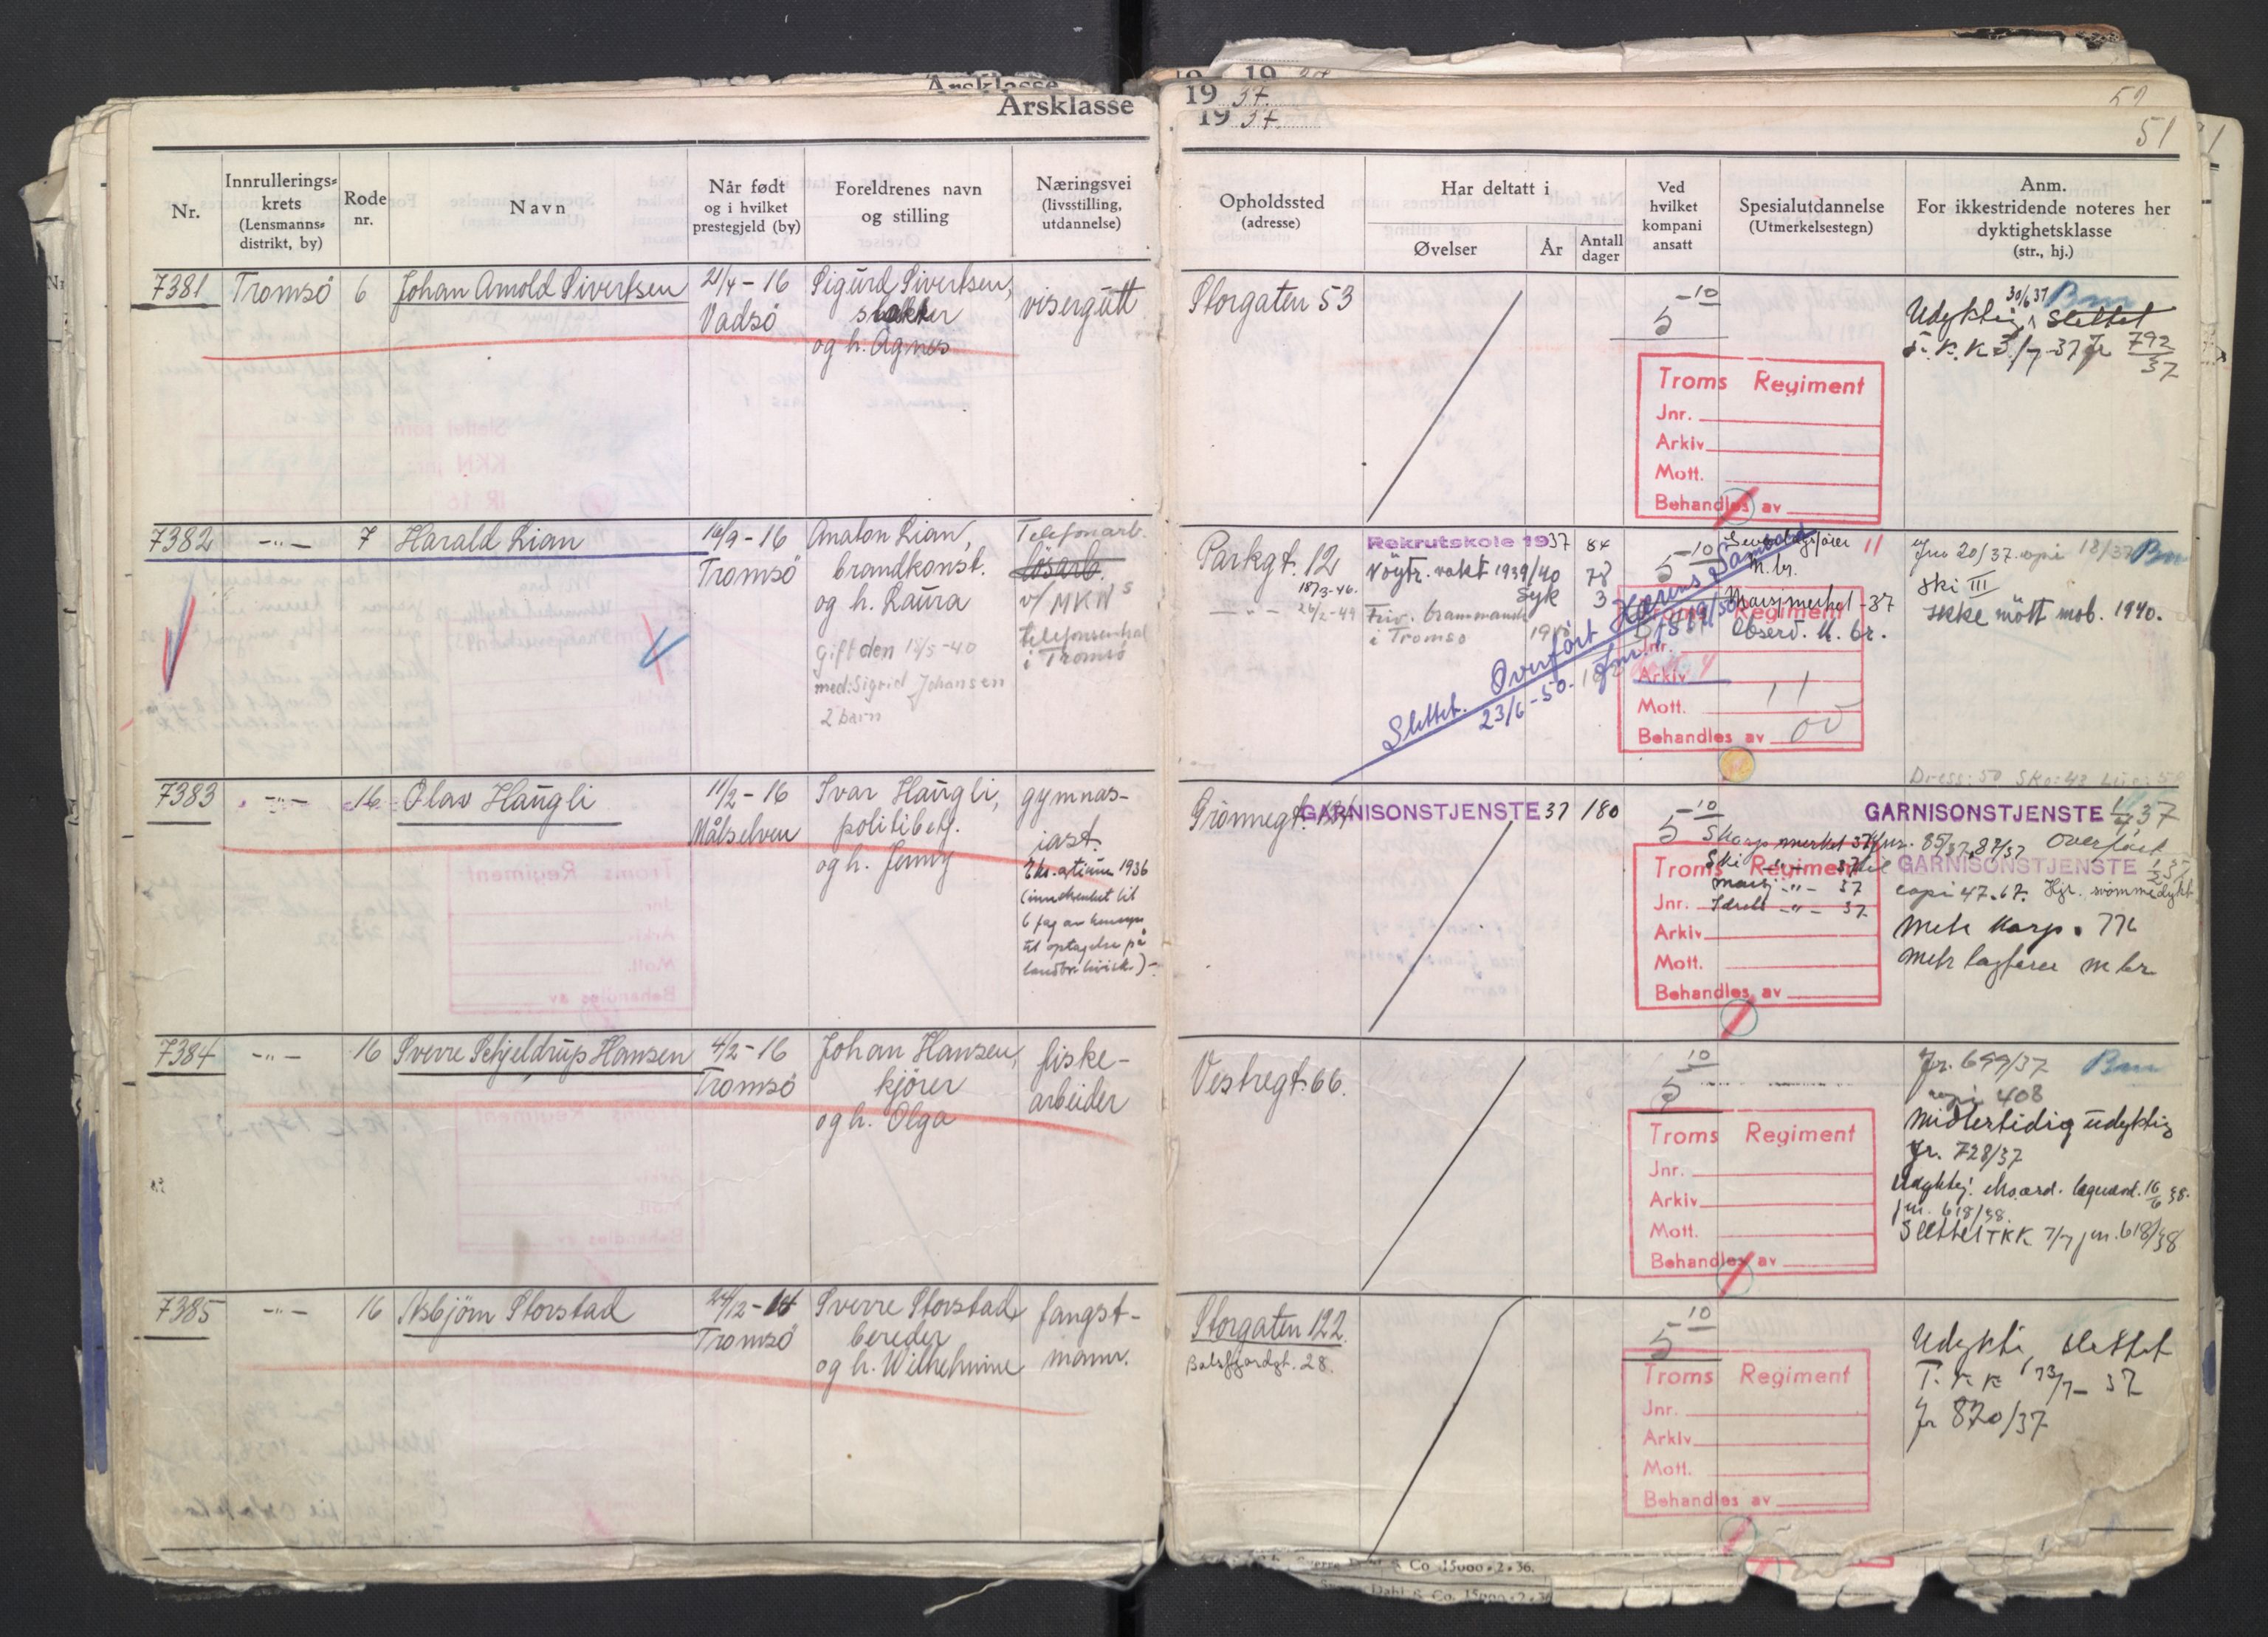 Årsklasse
Årsklasse
19 37.
19 37.
52
51
Nr.
Innrullerings-
krets
(Lensmanns-
distrikt, by)
Rode
nr.
Navn
Når født
og i hvilket
prestegjeld (by)
Foreldrenes navn
og stilling
Næringsvei
(livsstilling,
utdannelse)
Opholdssted
(adresse)
Har deltatt i
Øvelser
År
Antall
dager
Ved
hvilket
kompani
ansatt
Spesialutdannelse
(Utmerkelsestegn)
Anm.
For ikkestridende noteres her
dyktighetsklasse
(str., hj.)
7381 Tromsö 6 Johan Arnold Sivertsen
21/4 - 16
Vadsö
Sigurd Sivertsen,
slakter
og h. Agnes
visergutt
Storgaten 53
5 10
Udyktig 30/6 37 Slettet
T.K.K 3/7-37 Jr 792/37
Troms Regiment
Jnr.
Arkiv
Mott.
Behandles av
7382 -"- 7 Harald Lian
16/9 - 16
Tromsö
Anaton Lian,
brandkonst.
og h. Laura
gift den 12/5-40
med: Sigrid Johansen
2 barn
Telefonarb.
lösarb.
v/ MKN's
telefonsentral
i Tromsö
Parkgt. 12
18/3-46.
-"- 26/2-49
Rekrutskole 1937 84
Nöytr. vakt 1939/40 78
Syk 3
Friv. brammannsk
i Tromsö 1940
Slettet. Overfört Hærens Samband
23/6-50. Jnr.
5 10
M. br.
Marsjmerket -37
Observ. M. br.
11
Jnr 20/37. copi 18/37 Bm
Ski III
Ikke mött mob. 1940.
Dress: 50 Sko: 43
Troms Regiment
Jnr.
Arkiv
Mott.
Behandles av
7383 -"- 16 Olav Haugli
11/2 - 16
Målselven
Ivar Haugli,
politibetj.
og h. Jenny
gymnas-
iast.
Eks. artium 1936
(innskrenket til
6 fag av hensyn
til optagelse på
landbr. høisk.)
Grönnegt.
GARNISONSTJENSTE 37 180
5 10
Skarp merket 37
Ski -"- 37
Marsj -"- 37
Idrett -"- 37
GARNISONSTJENSTE 1/4 37
jnr. 85/37, 87/37 Overfört
til GARNISONSTJENSTE 1/2 37
copi 47.67. Hjr. svømmedykt.
Mtr Korp. 776
Mtr lagfører m br
Troms Regiment
Jnr.
Arkiv
Mott.
Behandles av
7384 -"- 16 Sverre Schjeldrup Hansen
4/2 - 16
Tromsö
Johan Hansen,
kjörer
og h. Olga
fiske-
arbeider
Vestregt. 66.
5 10
Jr. 699/37 Bm
copi 408
Midlertidig udyktig
Jr. 728/37
Udyktig. eks.ord. legeund. 16/6 38.
jnr. 618/38.
Slettet TKK 7/7 jnr. 618/38
Troms Regiment
Jnr.
Arkiv
Mott.
Behandles av
7385 -"- 16 Asbjörn Storstad
24/12 - 14
Tromsö
Sverre Storstad,
bereder
og h. Wilhelmine
fangst-
mann.
Storgaten 122.
Balsfjordgt. 28.
5 10
Udykti, slettet
T.K.K 13/7- 37
Jr 870/37
Troms Regiment
Jnr.
Arkiv
Mott.
Behandles av
Sverre Dahl & Co 15000.2.36.
Dahl & Co. 15000.2.36